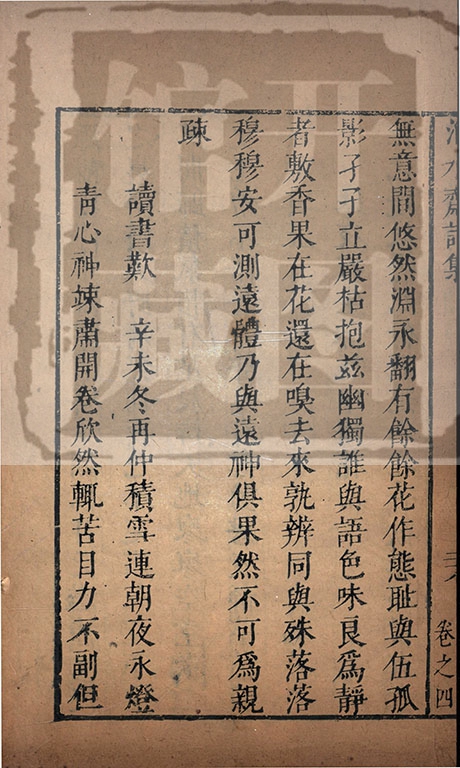 無意間悠然淵永翻有餘餘花作態耻與伍孤
影孑孑立嚴枯抱兹幽獨誰與語色味良爲靜
者敷香果在花還在嗅去來孰辨同與殊落落
穆穆安可測遠體乃與遠神俱果然不可爲親
疎
讀書歎 辛未冬再仲積雪連朝夜永燈
靑心神竦肅開卷欣然輒苦目力不副但
齋詩集
卷之四